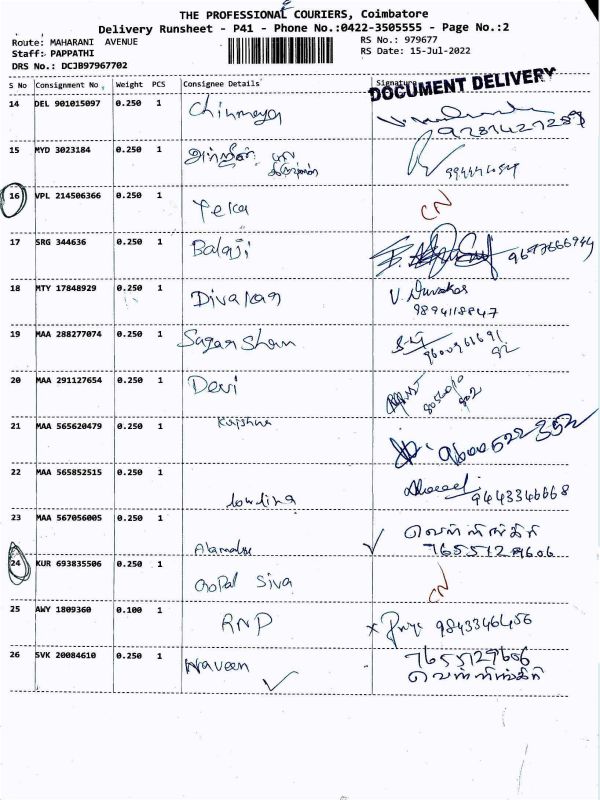 THE PROFESSIONAL COURIERS, Coimbatore
Delivery Runsheet - P41 - Phone No.:0422-3505555 - Page No.:2
Route: MAHARANI AVENUE RS No.: 979677
Staff: PAPPATHI RS Date: 15-Jul-2022
DRS No.: DCJB97967702
S No Consignment No. Weight PCS Consignee Details Signature
DOCUMENT DELIVERY
14 DEL 901015097 0.250 1 Chinmaya
15 MYD 3023184 0.250 1
16 VPL 214506366 0.250 1 CN
17 SRG 344636 0.250 1 Balaji
18 MTY 17848929 0.250 1 Divakar V. Divakar
9894118847
19 MAA 288277074 0.250 1
20 MAA 291127654 0.250 1 Devi
21 MAA 565620479 0.250 1 Krishna 9600522352
22 MAA 565852515 0.250 1 9443346668
23 MAA 567056005 0.250 1 வெள்ளிங்கிரி
24 KUR 693835506 0.250 1 Gopal Siva CN
25 AWY 1809360 0.100 1 RNP 9843346456
26 SVK 20084610 0.250 1 Naveen 7655129606
வெள்ளிங்கிரி